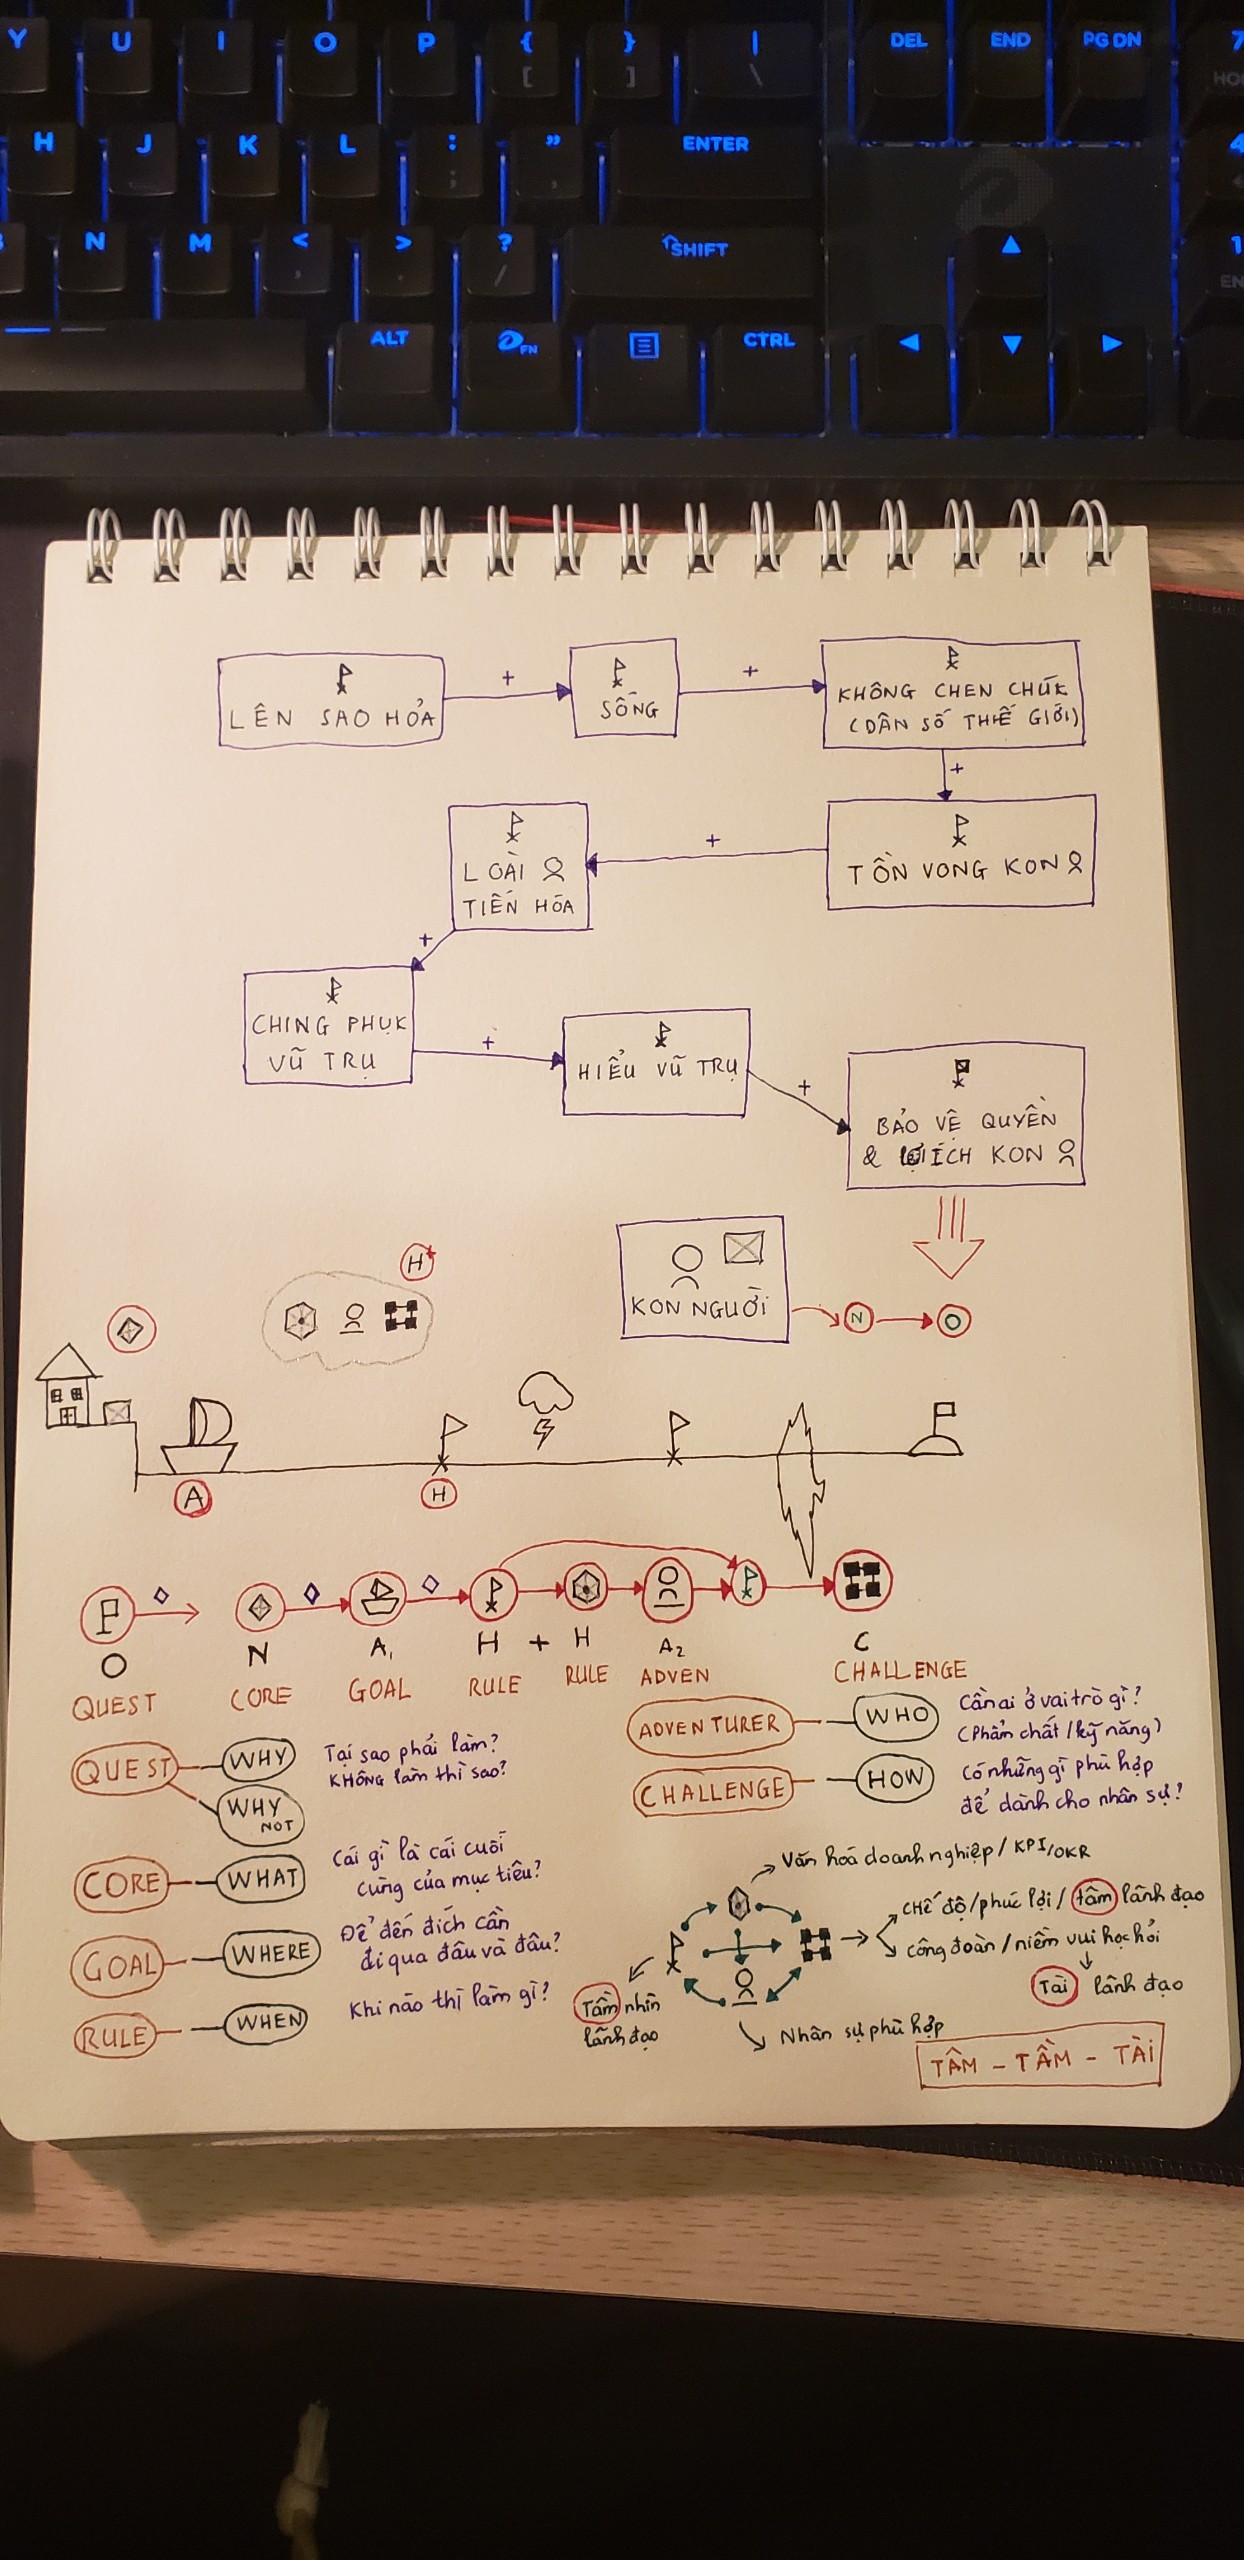 Y U I O P { [ } ] | \ DEL END PG DN 7
H J K L : ; " ' ENTER 4
N M < , > . ? / SHIFT 1
ALT FN CTRL
LÊN SAO HỎA
+
SỐNG
+
KHÔNG CHEN CHÚK
(DÂN SỐ THẾ GIỚI)
+
TỒN VONG KON
+
LOÀI
TIẾN HÓA
+
CHING PHỤK
VŨ TRỤ
+
HIỂU VŨ TRỤ
+
BẢO VỆ QUYỀN
& LỢI ÍCH KON
KON NGƯỜI
N O
H*
A H
O N A1 H + H A2 C
QUEST CORE GOAL RULE RULE ADVEN CHALLENGE
QUEST WHY Tại sao phải làm?
KHÔNG làm thì sao?
WHY
NOT
CORE WHAT Cái gì là cái cuối
cùng của mục tiêu?
GOAL WHERE Để đến đích cần
đi qua đâu và đâu?
RULE WHEN Khi nào thì làm gì?
ADVENTURER WHO Cần ai ở vai trò gì?
(Phẩm chất / kỹ năng)
CHALLENGE HOW Có những gì phù hợp
để dành cho nhân sự?
Văn hoá doanh nghiệp / KPI/OKR
CHế độ/phúc lợi / tâm lãnh đạo
công đoàn / niềm vui học hỏi
Tài lãnh đạo
Tầm nhìn
lãnh đạo
Nhân sự phù hợp
TÂM - TẦM - TÀI